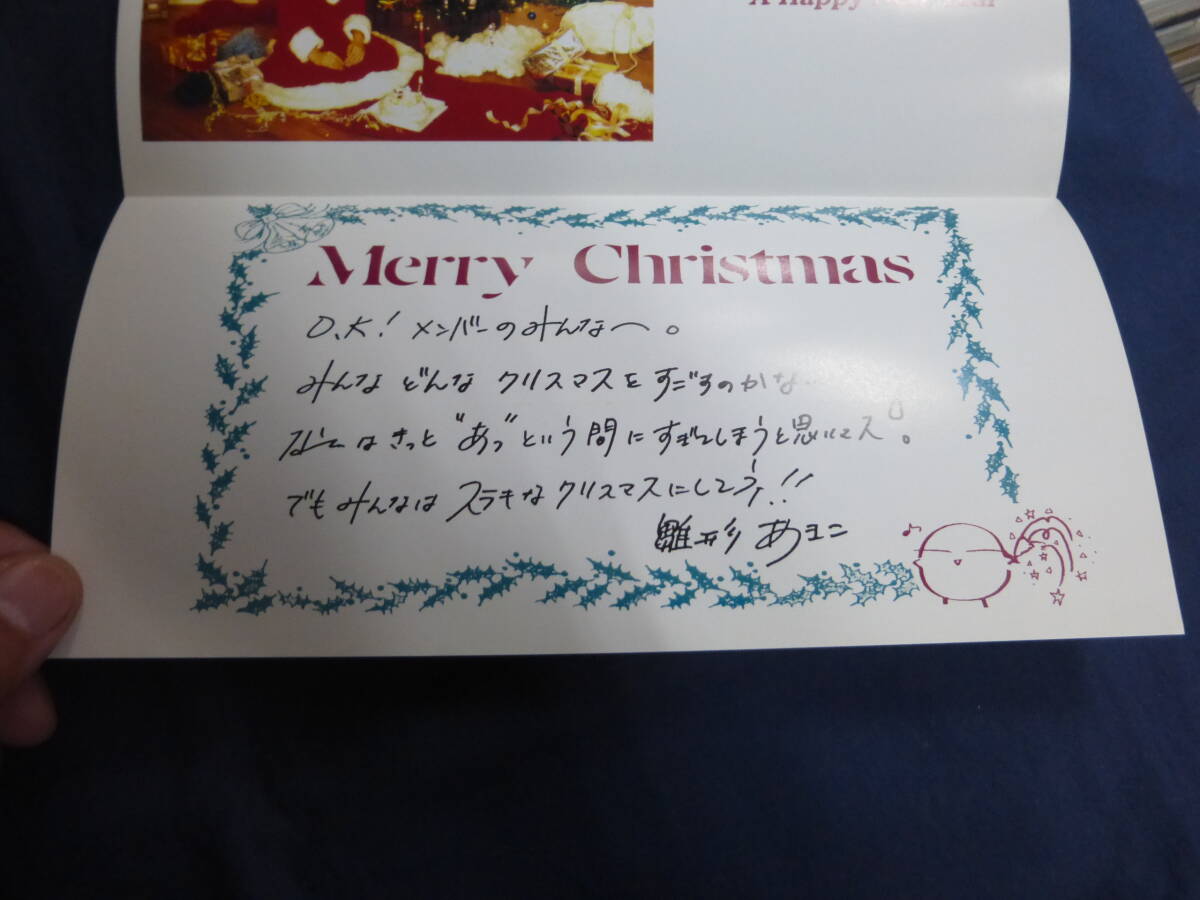 A Happy
Merry Christmas
O.K! メンバーのみんなへ。
みんな どんな クリスマスを すごすのかな…
はきっと "あっ" という間に すぎてしまうと思いマス。
でもみんなは ステキな クリスマスにしてネ!!
雛形 あきこ